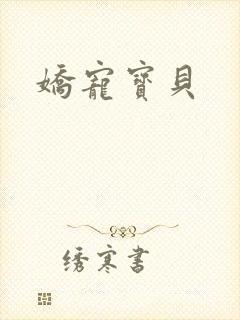 嬌寵寶貝
绣寒書